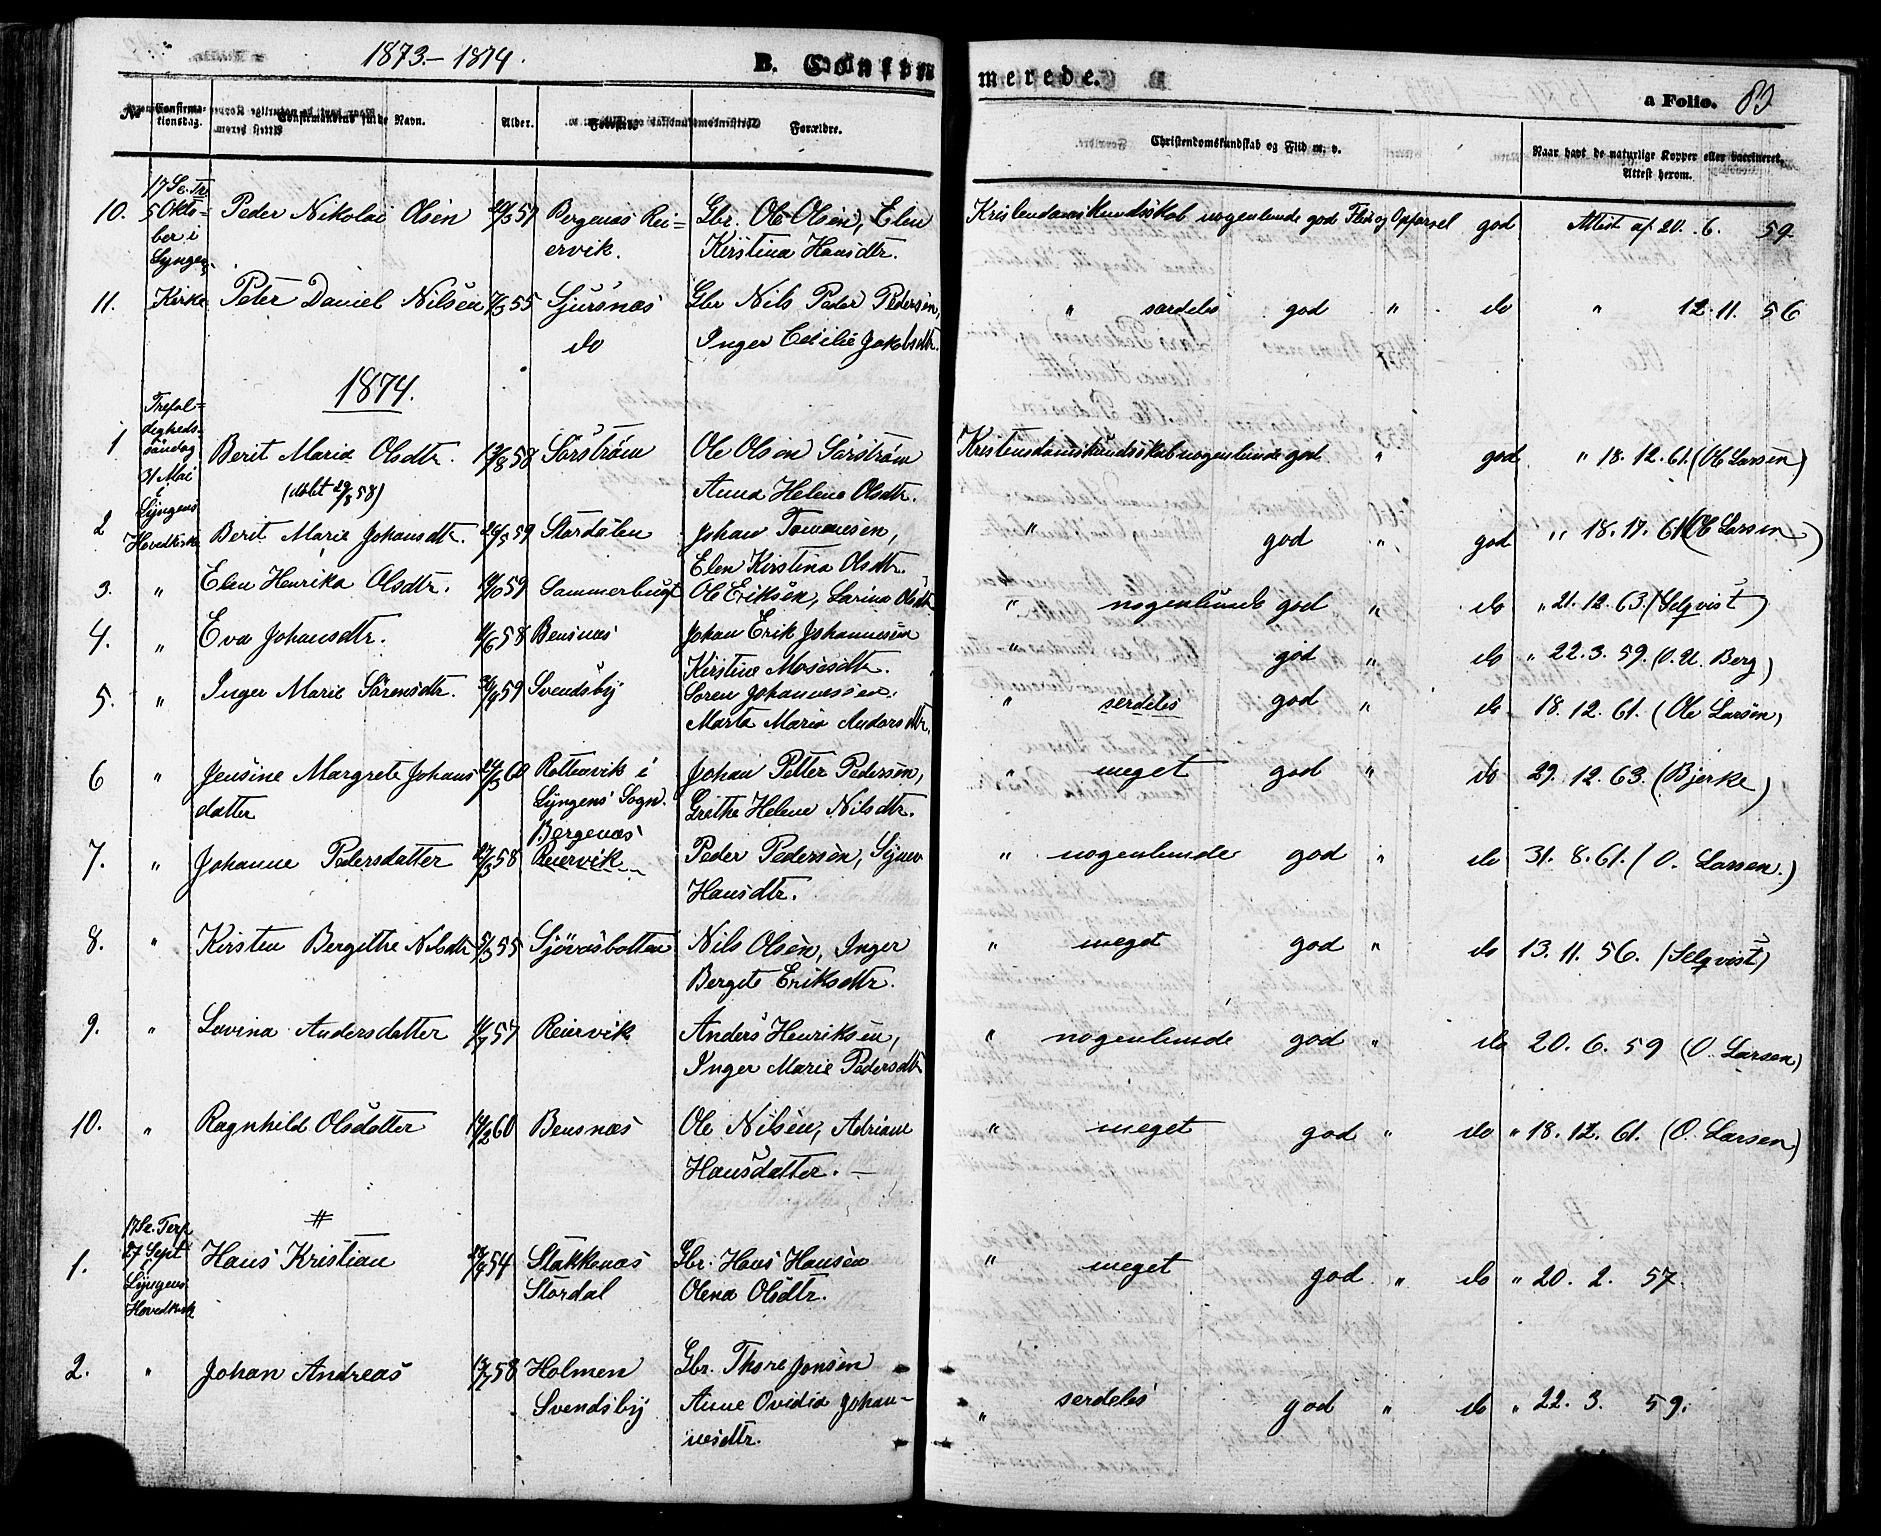 1873.-1874.
B. Confir merede. a Folio.
No Confirma-tionsdag. Confirmandens fulde Navn. Alder. Forældre. Christendomskundskab og Flid m. v. Naar havt de naturlige Kopper eller vaccineret, Attest herom.
17 S. e. Tr.
10. 5 Okto- Peder Nikolai Olsen 57 Bergenæs Rei- Gbr. Ole Olsen, Elen Kristendomskundskab nogenlunde god Flid og Opførsel god Attest af 20. 6. 59.
ber i ervik. Kirstina Hansdtr.
Lyngens
11. Kirke Peter Daniel Nilsen 55 Sjursnæs Gbr Nils Peder Pedersen, " særdeles god " do " 12. 11. 56
do Inger Cecilie Jakobsdtr.
1874.
Trefol-
digheds-
1 søndag Berit Maria Olsdtr. 58 Sørstrøm Ole Olsen Sørstrøm Kristendomskundskab nogenlunde god " god " 18. 12. 61. (Ole Larsen)
31 Mai (døbt 29/8 58) Anna Helene Olsdtr.
i
Lyngens
2 Hovedkirke Berit Marie Johansdtr. 59 Stordalen Johan Tommesen, " god " god " 18. 17. 61 (Ole Larsen)
Elen Kirstina Olsdtr.
3. " Elen Henrika Olsdtr. 59 Sammerbugt Ole Eriksen, Larina Olsdtr " nogenlunde god " do " 21. 12. 63. (Selqvist)
4. " Eva Johansdtr. 58 Bensnæs Johan Erik Johannesen " god " do " 22. 3. 59. (O. U. Berg)
Kirstine Mosesdtr.
5. " Inger Marie Sørensdtr. 59 Svendsby Søren Johannesen. " serdeles god " do 18. 12. 61. (Ole Larsen)
Marta Maria Andersdtr.
6 " Jensine Margrete Johans 60 Rottenvik i Johan Petter Pedersen, " meget god " do 29. 12. 63. (Bjerke)
datter Lyngens Sogn. Grethe Helene Nilsdtr.
Bergenæs
7. " Johanne Pedersdatter 58 Reiervik Peder Pedersen, Synev " nogenlunde god " do 31. 8. 61. (O. Larsen.)
Hansdtr.
8. " Kirsten Bergithe Nilsdtr 55 Sjøvasbotten Nils Olsen, Inger " meget god " do 13. 11. 56. (Selqvist)
Bergite Eriksdtr.
9. " Lovina Andersdatter 57 Reiervik Anders Henriksen, " nogenlunde god " do 20. 6. 59 (O. Larsen)
Inger Marie Pedersdtr
10. " Ragnhild Olsdatter 60 Bensnæs Ole Nilsen, Adriane " meget god " do " 18. 12. 61. (O. Larsen)
Hansdatter. —
17 S. e. Tref
1. 27 Sept Hans Kristian 54 Stakkenæs Gbr. Hans Hansen " meget god. " do " 20. 2. 57.
i
Lyngens Stordal Olena Olsdtr.
Hovedkirk
2. " Johan Andreas 58 Holmen Gbr. Thore Jonsen
Svendsby Anne Ovidia Johan- " serdeles god " do " 22. 3. 59.
nesdtr.